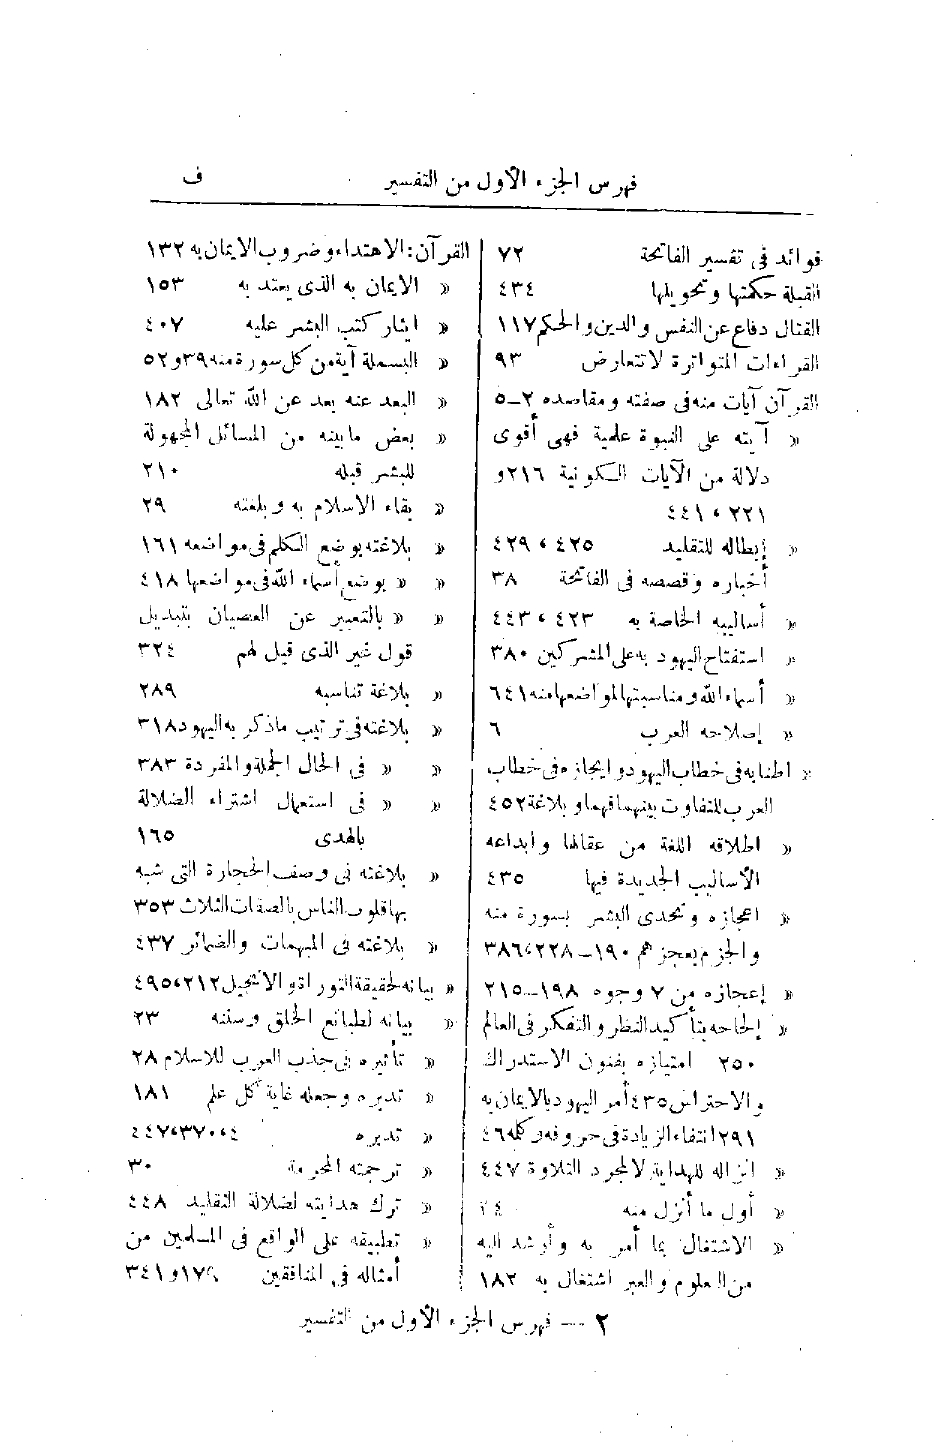 فهرس الجزء الأول من التفسير ف
فوائد فى تفسير الفاتحة ٧٢
القبلة حكمتها وتحويلها ٤٣٤
القتال دفاع عن النفس والدين والحكم ١١٧
القراءات المتواترة لا تتعارض ٩٣
القرآن آيات منه فى صفته ومقاصده ٢-٥
« آيته على النبوة علمية فهى أقوى
دلالة من الآيات الكونية ٢١٦ و
٢٢١ ، ٤٤١
« إبطاله للتقليد ٤٢٥ ، ٤٢٩
أخباره وقصصه فى الفاتحة ٣٨
« أساليبه الخاصة به ٤٢٣ ، ٤٤٣
« استفتاح اليهود به على المشركين ٣٨٠
« أسماء الله ومناسبتها لمواضعها منه ٦٤١
« إصلاحه العرب ٦
« اطنابه فى خطاب اليهود وايجازه فى خطاب
العرب للتفاوت بينهما فهما وبلاغة ٤٥٢
« اطلاقه اللغة من عقالها وابداعه
الأساليب الجديدة فيها ٤٣٥
« اعجازه وتحدى البشر بسورة منه
والجزم بعجزهم ١٩٠ – ٢٢٨ ، ٣٨٦
« إعجازه من ٧ وجوه ١٩٨ – ٢١٥
« إلحاحه بتأكيد النظر والتفكر فى العالم
٢٥٠ امتيازه بفنون الاستدراك
والاحتراس ٤٣٥ أمر اليهود بالايمان به
٢٩١ انتفاء الزيادة فى حروفه وكله ٤٦
« انزاله للهداية لا لمجرد التلاوة ٤٤٧
« أول ما أنزل منه ٣٤
« الاشتغال بما أمر به وأرشد اليه
من العلوم والعبر اشتغال به ١٨٢
القرآن : الاهتداء وضروب الايمان به ١٣٢
« الايمان به الذى يعتد به ١٥٣
« ايثار كتب البشر عليه ٤٠٧
« البسملة آية من كل سورة منه ٣٩ و ٥٢
« البعد عنه بعد عن الله تعالى ١٨٢
« بعض ما بينه من المسائل المجهولة
للبشر قبله ٢١٠
« بقاء الاسلام به وبلغته ٢٩
« بلاغته بوضع الكلم فى مواضعه ١٦١
« « بوضع أسماء الله فى مواضعها ٤١٨
« « بالتعبير عن العصيان بتبديل
قول غير الذى قيل لهم ٣٢٤
« بلاغة تناسبه ٢٨٩
« بلاغته فى ترتيب ما ذكر به اليهود ٣١٨
« « فى الحال الجملة والمفردة ٣٨٣
« « فى استعمال اشتراء الضلالة
بالهدى ١٦٥
« بلاغته فى وصف الحجارة التى شبه
بها قلوب الناس بالصفات الثلاث ٣٥٣
« بلاغته فى المبهمات والضمائر ٤٣٧
« بيانه لحقيقة التوراة والانجيل ٢١٢ ، ٤٩٥
« بيانه لطبائع الخلق وسننه ٢٣
« تأثيره فى جذب العرب للاسلام ٢٨
« تدبره وجعله غاية كل علم ١٨١
« تدبره ٤ ، ٣٧٠ ، ٤٤٧
« ترجمته المحرمة ٣٠
« ترك هدايته لضلالة التقليد ٤٤٨
« تطبيقه على الواقع فى المسلمين من
أمثاله فى المنافقين ١٧٩ و ٣٤١
٢ — فهرس الجزء الأول من التفسير